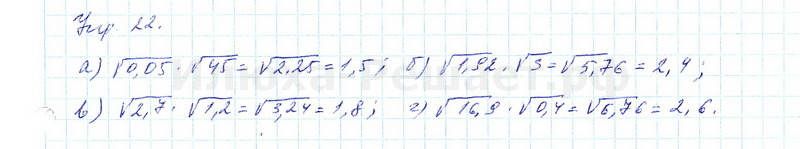 Упр. 22.
а) √0,05 · √45 = √2,25 = 1,5; б) √1,92 · √3 = √5,76 = 2,4;
в) √2,7 · √1,2 = √3,24 = 1,8; г) √16,9 · √0,4 = √6,76 = 2,6.